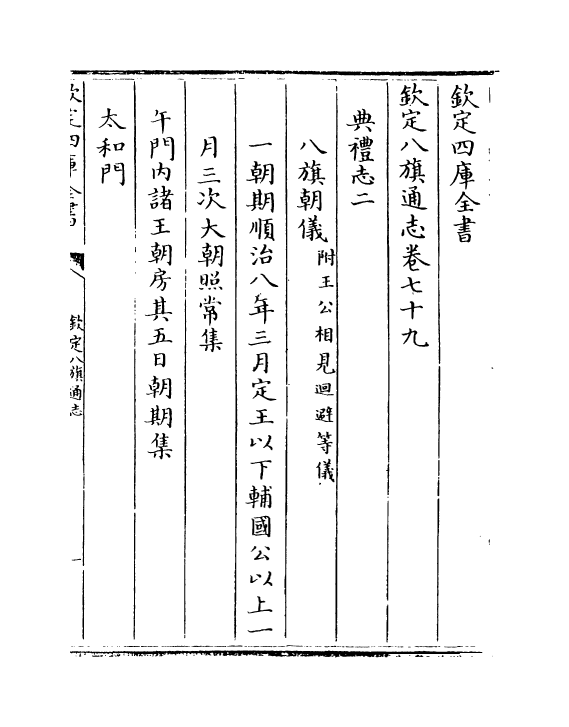 欽定四庫全書
欽定八旗通志卷七十九
典禮志二
八旗朝儀附王公相見迴避等儀
一朝期順治八年三月定王以下輔國公以上一
月三次大朝照常集
午門內諸王朝房其五日朝期集
太和門
欽定四庫全書
欽定八旗通志
一